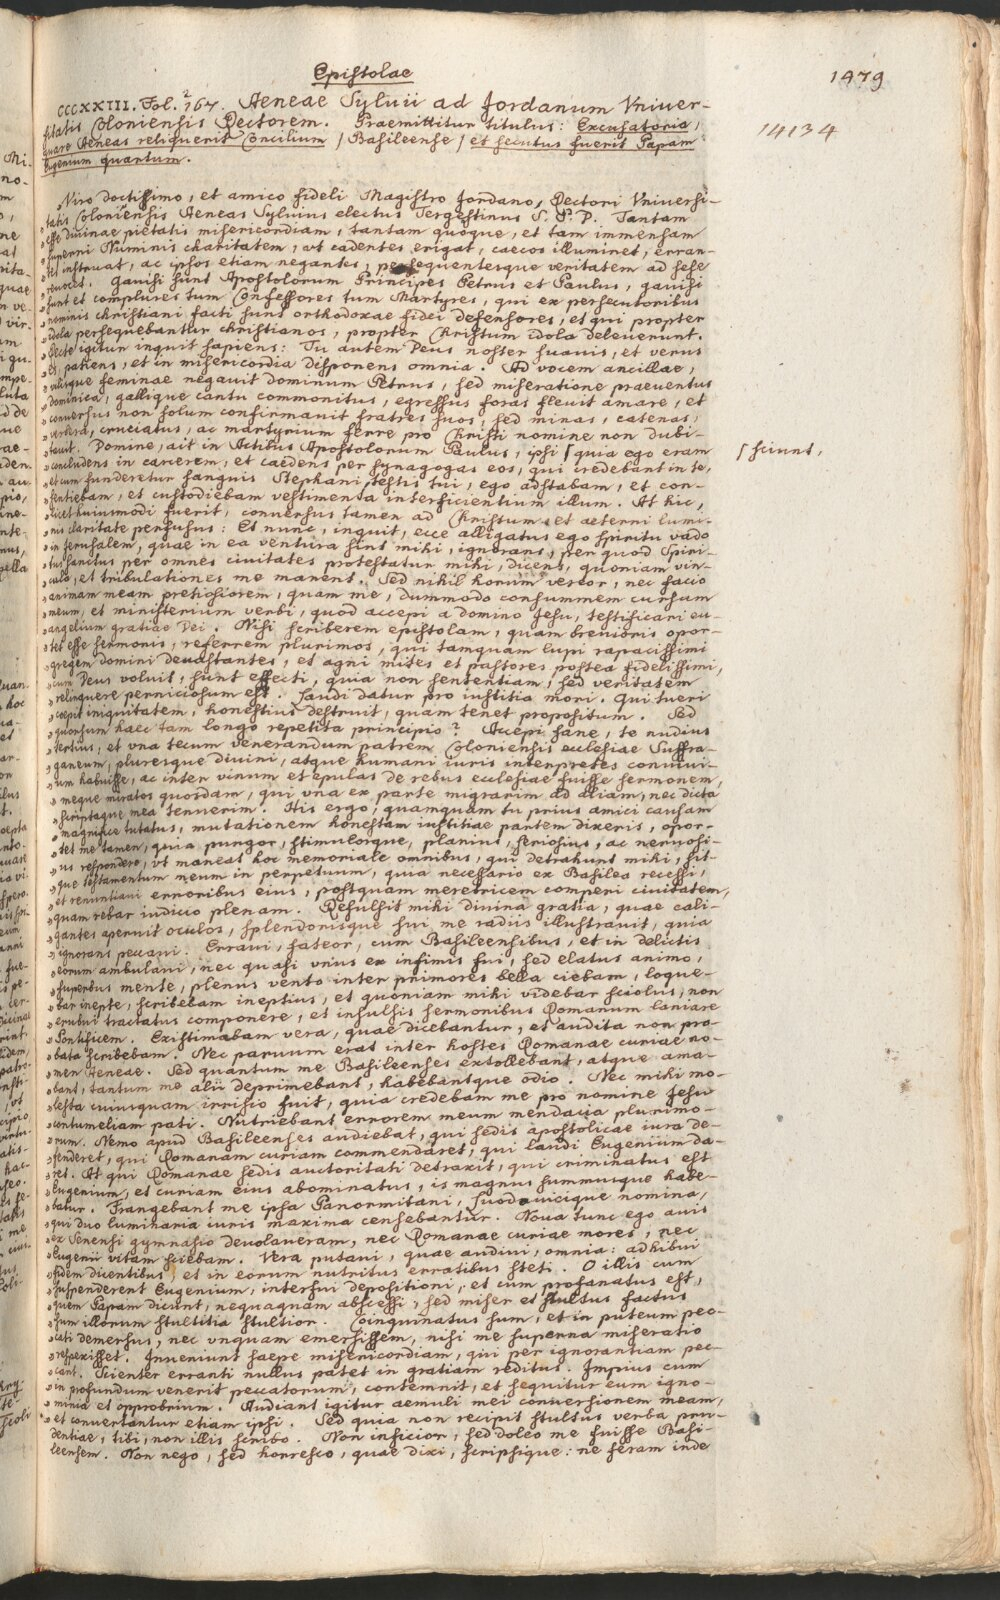 Epistolae
1479
CCCXXIII. Fol. 2 167. Aeneae Sylvii ad Jordanum Vniver-
sitatis Coloniensis Rectorem. Praemittitur titulus: Excusatoria,
14134
quare Aeneas reliquerit Concilium / Basileense / et secutus fuerit Papam
Eugenium quartum.
„Viro doctissimo, et amico fideli Magistro Jordano, Rectori Vniversi-
„tatis Coloniensis Aeneas Sylvius electus Tergestinus S. P. P. Tantam
„esse divinae pietatis misericordiam, tantam quoque, et tam immensam
„superni Numinis charitatem, vt cadentes erigat, caecos illuminet, erran-
„tes instruat, ac ipsos etiam negantes, persequentesque veritatem ad sese
„revocet. Gavisi sunt Apostolorum Principes Petrus et Paulus, gavisi
„sunt et complures tum Confessores tum Martyres, qui ex persecutoribus
„nominis christiani facti sunt orthodoxae fidei defensores, et qui propter
„idola persequebantur christianos, propter Christum idola deleverunt.
„Recte igitur inquit sapiens: Tu autem Deus noster suavis, et verus
„es, patiens, et in misericordia disponens omnia. Ad vocem ancillae,
„vilisque feminae negavit dominum Petrus, sed miseratione praeventus
„dominica, gallique cantu commonitus, egressus foras flevit amare, et
„conversus non solum confirmavit fratres suos, sed minas, catenas,
„verbera, cruciatus, ac martyrium ferre pro Christi nomine non dubi-
„tavit. Domine, ait in Actibus Apostolorum Paulus, ipsi ſ quia ego eram
ſ sciunt,
„concludens in carcerem, et caedens per synagogas eos, qui credebant in te,
„et cum funderetur sanguis Stephani testis tui, ego adstabam, et con-
„sentiebam, et custodiebam vestimenta interficientium illum. At hic,
„licet huiusmodi fuerit, conversus tamen ad Christum, et aeterni lumi-
„nis claritate perfusus: Et nunc, inquit, ecce alligatus ego spiritu vado
„in Jerusalem, quae in ea ventura sint mihi, ignorans, per quod Spiri-
„tus sanctus per omnes civitates protestatur mihi, dicens, quoniam vin-
„cula, et tribulationes me manent. Sed nihil horum vereor, nec facio
„animam meam pretiosiorem, quam me, dummodo consummem cursum
„meum, et ministerium verbi, quod accepi a domino Jesu, testificari eu-
„angelium gratiae Dei. Nisi scriberem epistolam, quam brevioris opor-
„tet esse sermonis, referrem plurimos, qui tamquam lupi rapacissimi
„gregem domini devastantes, et agni mites et pastores postea fidelissimi,
„cum Deus voluit, sunt effecti, quia non sententiam, sed veritatem
„relinquere perniciosum est. Laudi datur pro iustitia mori. Qui tueri
„coepit iniquitatem, honestius destruit, quam tenet propositum. Sed
„quorsum haec tam longo repetita principio? Accepi sane, te nudius
„tertius, et vna tecum venerandum patrem Coloniensis ecclesiae Suffra-
„ganeum, pluresque divini, atque humani iuris interpretes convivi-
„um habuisse, ac inter vinum et epulas de rebus ecclesiae fuisse sermonem,
„meque miratos quosdam, qui vna ex parte migrarim ad aliam, nec dicta
„scriptaque mea tenuerim. His ergo, quamquam tu prius amici causam
„magnifice tutatus, mutationem honestam iustitiae partem dixeris, opor-
„tet me tamen, quia pungor, stimulorque, planius, seriosius, ac nervosi-
„us respondere, vt maneat hoc memoriale omnibus, qui detrahunt mihi, sit-
„que testamentum meum in perpetuum, quia necessario ex Basilea recessi,
„et renuntiavi erroribus eius, postquam meretricem comperi civitatem,
„quam rebar iudicio plenam. Refulsit mihi divina gratia, quae cali-
„gantes aperuit oculos, splendorisque sui me radiis illustravit, quia
„ignorans peccavi. Erravi, fateor, cum Basileensibus, et in delictis
„eorum ambulavi, nec quasi vnus ex infimis fui, sed elatus animo,
„superbus mente, plenus vento inter primores bella ciebam, loque-
„bar inepte, scribebam ineptius, et quoniam mihi videbar sciolus, non
„erubui tractatus componere, et insulsis sermonibus Romanum laniare
„Pontificem. Existimabam vera, quae dicebantur, et audita non pro-
„bata scribebam. Nec parvum erat inter hostes Romanae curiae no-
„men Aeneae. Sed quantum me Basileenses extollebant, atque ama-
„bant, tantum me alii deprimebant, habebantque odio. Nec mihi mo-
„lesta cuiusquam irrisio fuit, quia credebam me pro nomine Jesu
„contumeliam pati. Nutriebant errorem meum mendacia plurimo-
„rum. Nemo apud Basileenses audiebat, qui sedis apostolicae iura de-
„fenderet, qui Romanam curiam commendaret, qui laudi Eugenium da-
„ret. At qui Romanae sedis auctoritati detraxit, qui criminatus est
„Eugenium, et curiam eius abominatus, is magnus summusque habe-
„batur. Frangebant me ipsa Panormitani, Ludovicique nomina,
„qui duo luminaria iuris maxima censebantur. Nova tunc ego avis
„ex Senensi gymnasio devolaveram, nec Romanae curiae mores, nec
„Eugenii vitam sciebam. Vera putavi, quae audivi, omnia: adhibui
„fidem dicentibus, et in eorum nutritus erratibus steti. O illis cum
„suspenderent Eugenium, interfui depositioni, et cum profanatus est,
„quem Papam dicunt, nequaquam abscessi, sed miser et stultus factus
„sum illorum stultitia stultior. Coinquinatus sum, et in puteum pec-
„cati demersus, nec vnquam emersissem, nisi me superna miseratio
„respexisset. Inveniunt saepe misericordiam, qui per ignorantiam pec-
„cant. Scienter erranti nullus patet in gratiam reditus. Impius cum
„in profundum venerit peccatorum, contemnit, et sequitur eum igno-
„minia et opprobrium. Audiant igitur aemuli mei conversionem meam,
„et convertantur etiam ipsi. Sed quia non recipit stultus verba pru-
„dentiae, tibi, non illis scribo. Non inficior, sed doleo me fuisse Basi-
„leensem. Non nego, sed horresco, quae dixi, scripsique: ne feram inde